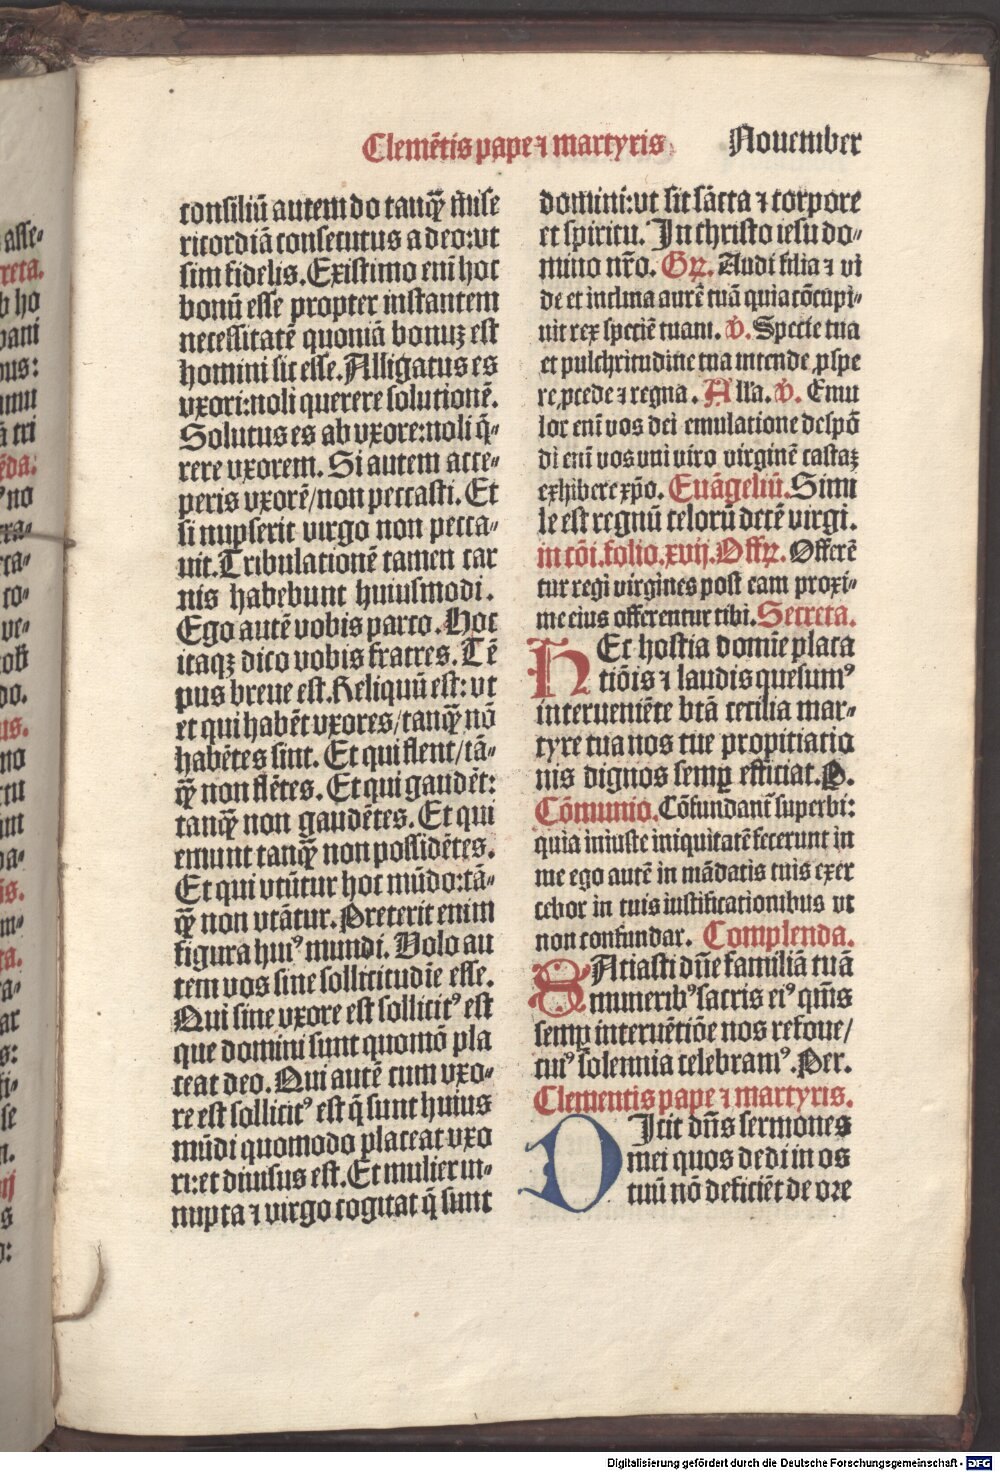 Clemẽtis pape ⁊ martyris
Nouember
consiliũ autem do tanqȝ mise
ricordiã consecutus a deo: vt
sim fidelis. Existimo eni hoc
bonũ esse propter instantem
necessitatẽ quoniã bonuȝ est
homini sic esse. Alligatus es
vxori: noli querere solutionẽ.
Solutus es ab vxore: noli q̃-
rere vxorem. Si autem acce-
peris vxorẽ/ non peccasti. Et
si nupserit virgo non pecca-
uit. Tribulationẽ tamen car
nis habebunt huiusmodi.
Ego autẽ vobis parco. Hoc
itaqȝ dico vobis fratres. Tẽ
pus breue est. Reliquũ est: vt
et qui habẽt vxores/ tanqȝ nõ
habẽtes sint. Et qui flent/ tã-
qȝ non flẽtes. Et qui gaudẽt:
tanqȝ non gaudẽtes. Et qui
emunt tanqȝ non possidẽtes.
Et qui vtũtur hoc mũdo: tã-
qȝ non vtãtur. Preterit enim
figura huiꝰ mundi. Volo au
tem vos sine sollicitudĩe esse.
Qui sine vxore est sollicitꝰ est
que domini sunt quomõ pla
ceat deo. Qui autẽ cum vxo-
re est sollicitꝰ est q̃ sunt huius
mũdi quomodo placeat vxo
ri: et diuisus est. Et mulier in-
nupta ⁊ virgo cogitat q̃ sunt
domini: vt sit sãcta ⁊ corpore
et spiritu. In christo iesu do-
mino nr̃o. Gr̃. Audi filia ⁊ vi
de et inclina aurẽ tuã quia cõcupi-
uit rex speciẽ tuam. v̾. Specie tua
et pulchritudine tua intende ꝓspe
re ꝓcede ⁊ regna. All'a. v̾. Emu
lor eni vos dei emulatione despõ
di eni vos vni viro virginẽ castaȝ
exhibere xp̃o. Euãgeliũ. Simi
le est regnũ celorũ decẽ virgi.
in cõi. folio. xvij. Offr̃. Offerẽ
tur regi virgines post eam proxi-
me eius offerentur tibi. Secreta.
HEc hostia domĩe placa
tiõis ⁊ laudis quesumꝰ
interueniẽte btã cecilia mar-
tyre tua nos tue propitiatio
nis dignos semꝑ efficiat. P.
Cõmunio. Cõfundant̃ superbi:
quia iniuste iniquitatẽ fecerunt in
me ego autẽ in mãdatis tuis exer
cebor in tuis iustificationibus vt
non confundar. Complenda.
SAtiasti dñe familiã tuã
muneribꝰ sacris eiꝰ qm̃s
semꝑ interuẽtiõe nos refoue/
cuiꝰ solennia celebramꝰ. Per.
Clementis pape ⁊ martyris.
DIcit dñs sermones
mei quos dedi in os
tuũ nõ deficiẽt de ore
asse-
reta.
Digitalisierung gefördert durch die Deutsche Forschungsgemeinschaft - DFG